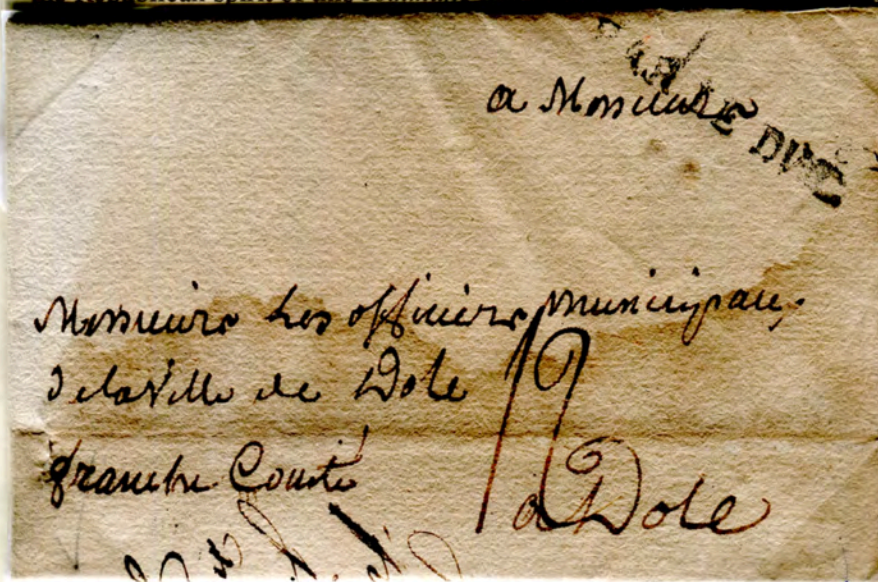 a Messieurs
Messieurs Les officiers municipaux
de la Ville de Dole
franche Comté
12
a Dole